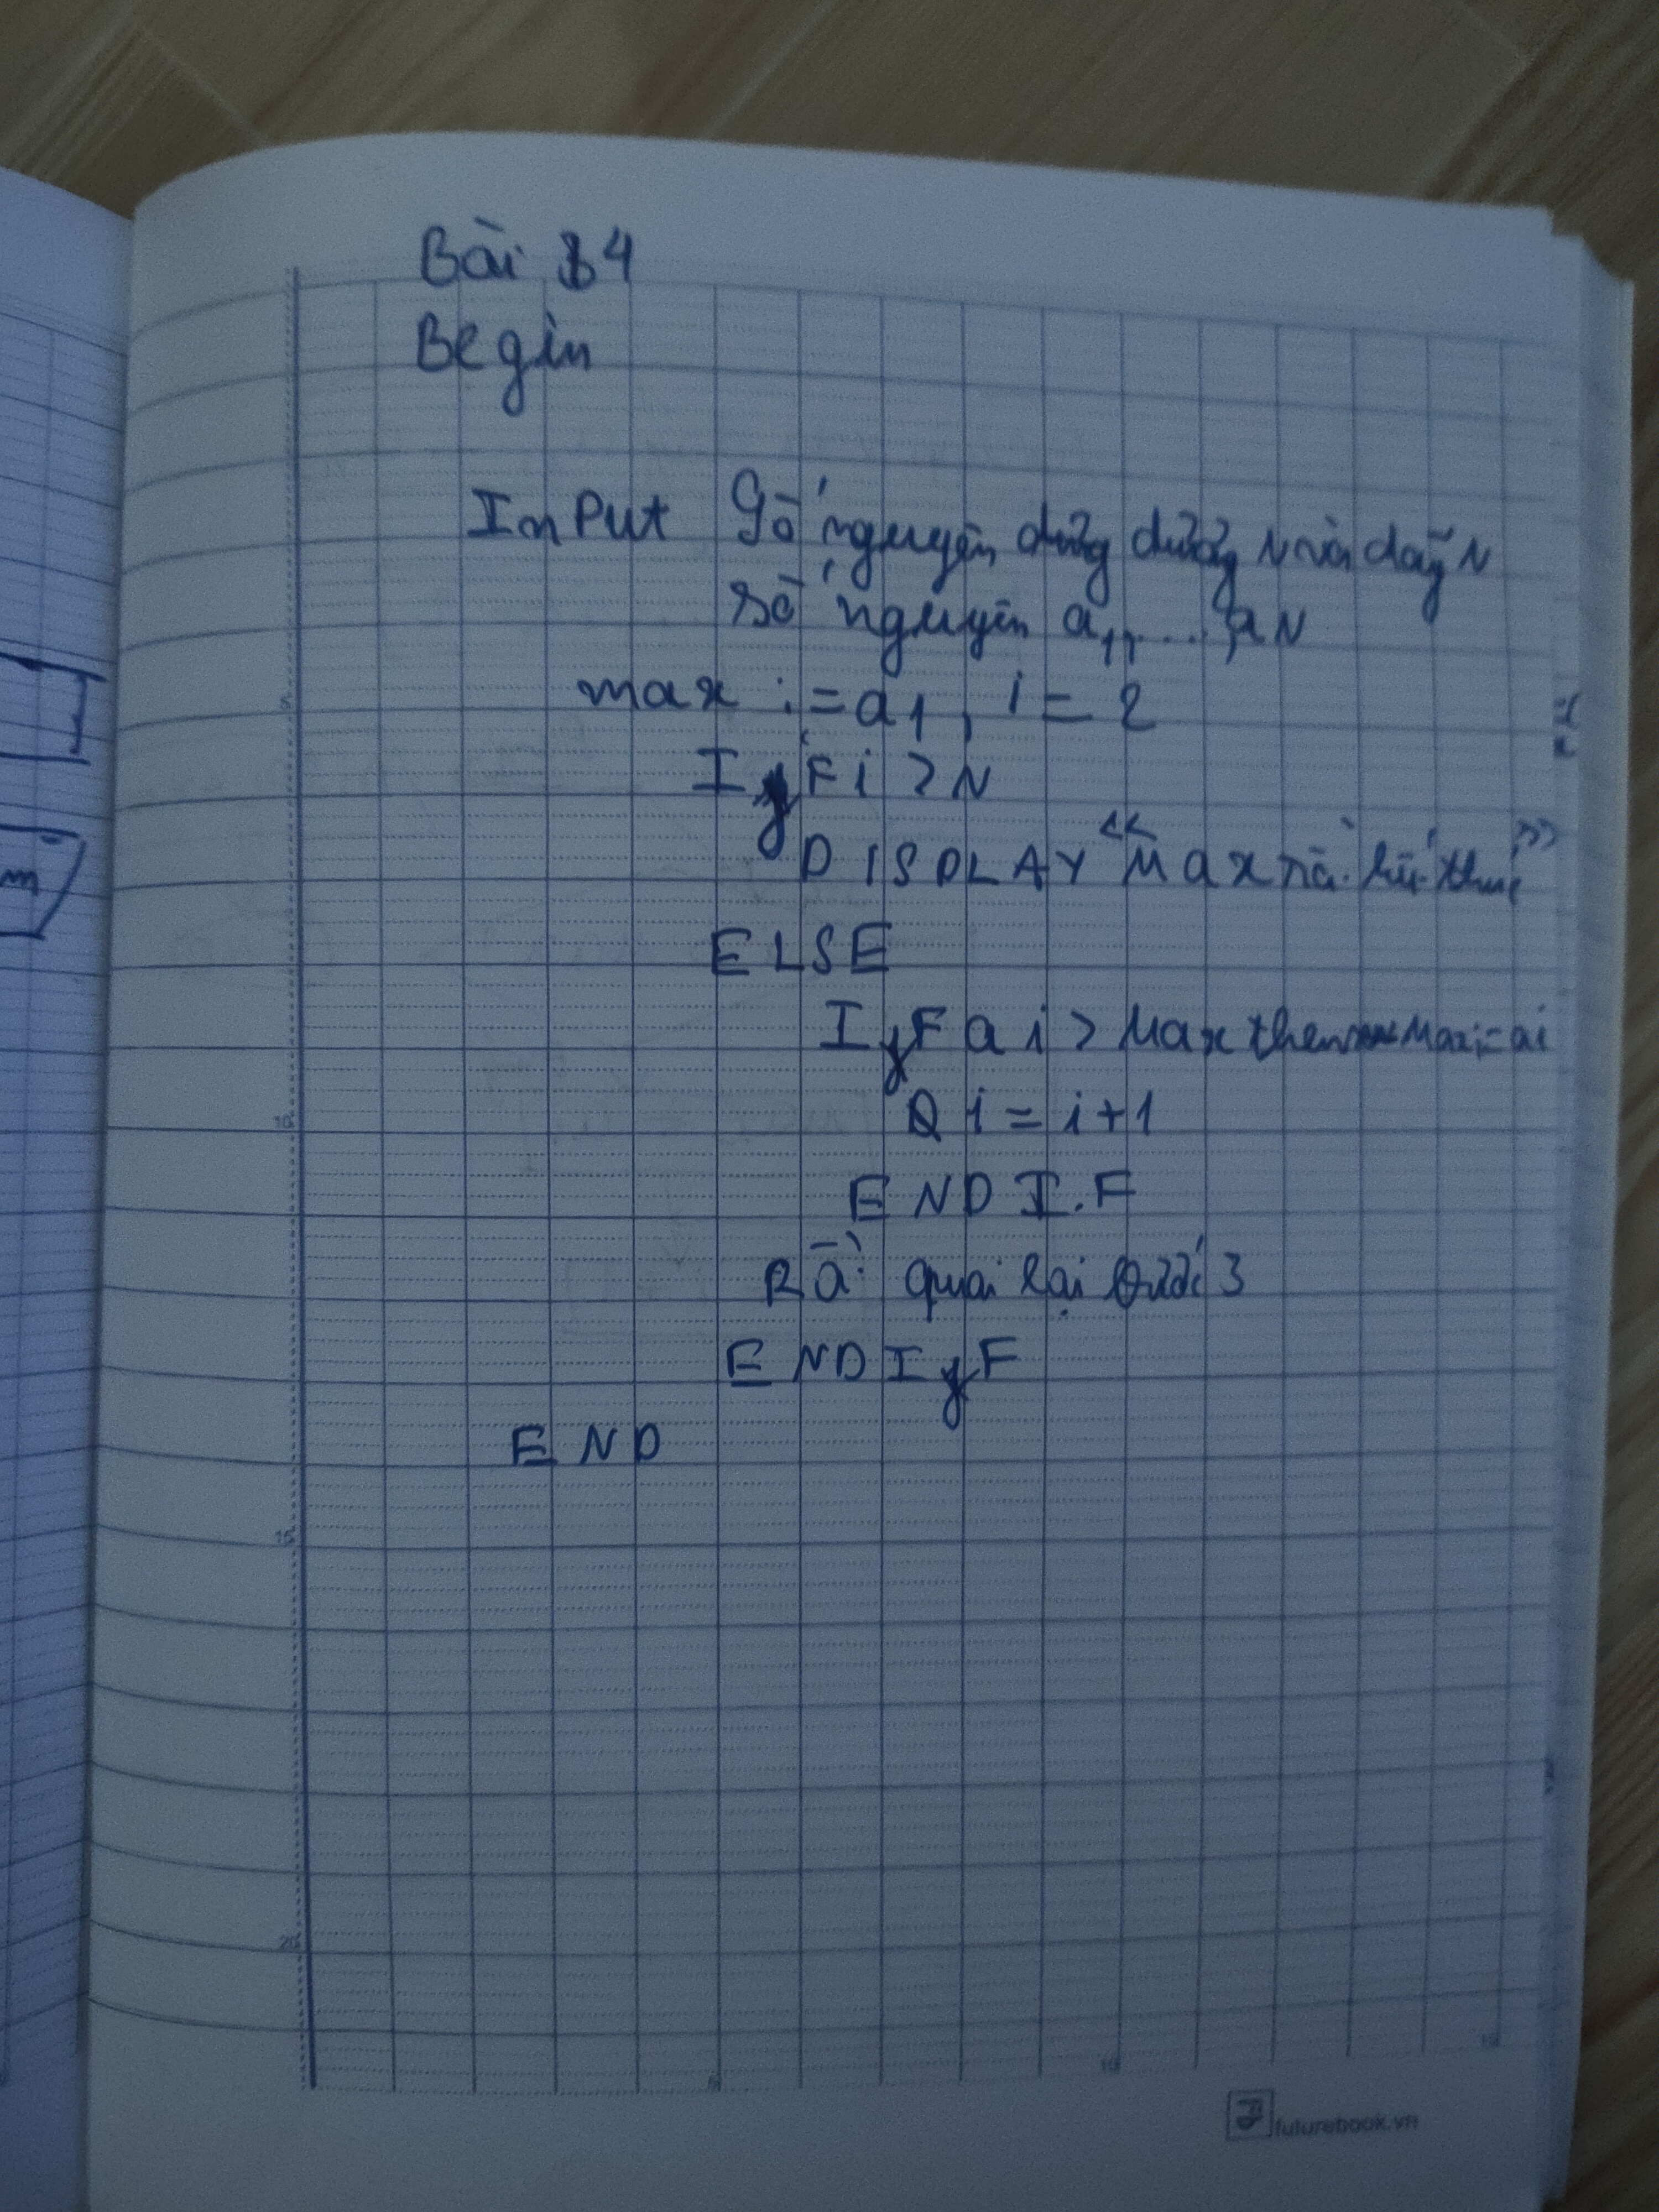 Bài 4
Begin
InPut Số nguyên dương dương N và dãy N
số nguyên a1, ..., aN
max := a1, i = 2
IF i > N
DISPLAY "Max
ELSE
IF ai > Max then Max:= ai
i = i+1
ENDI.F
Rồi quai lại bước 3
ENDIF
END
m
5
10
15
20
5
10
15
futurebook.vn